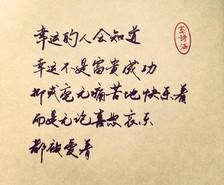 幸运的人会知道
幸运不是富贵成功
抑或毫无痛苦地快乐着
而是无论喜怒哀乐
都被爱着